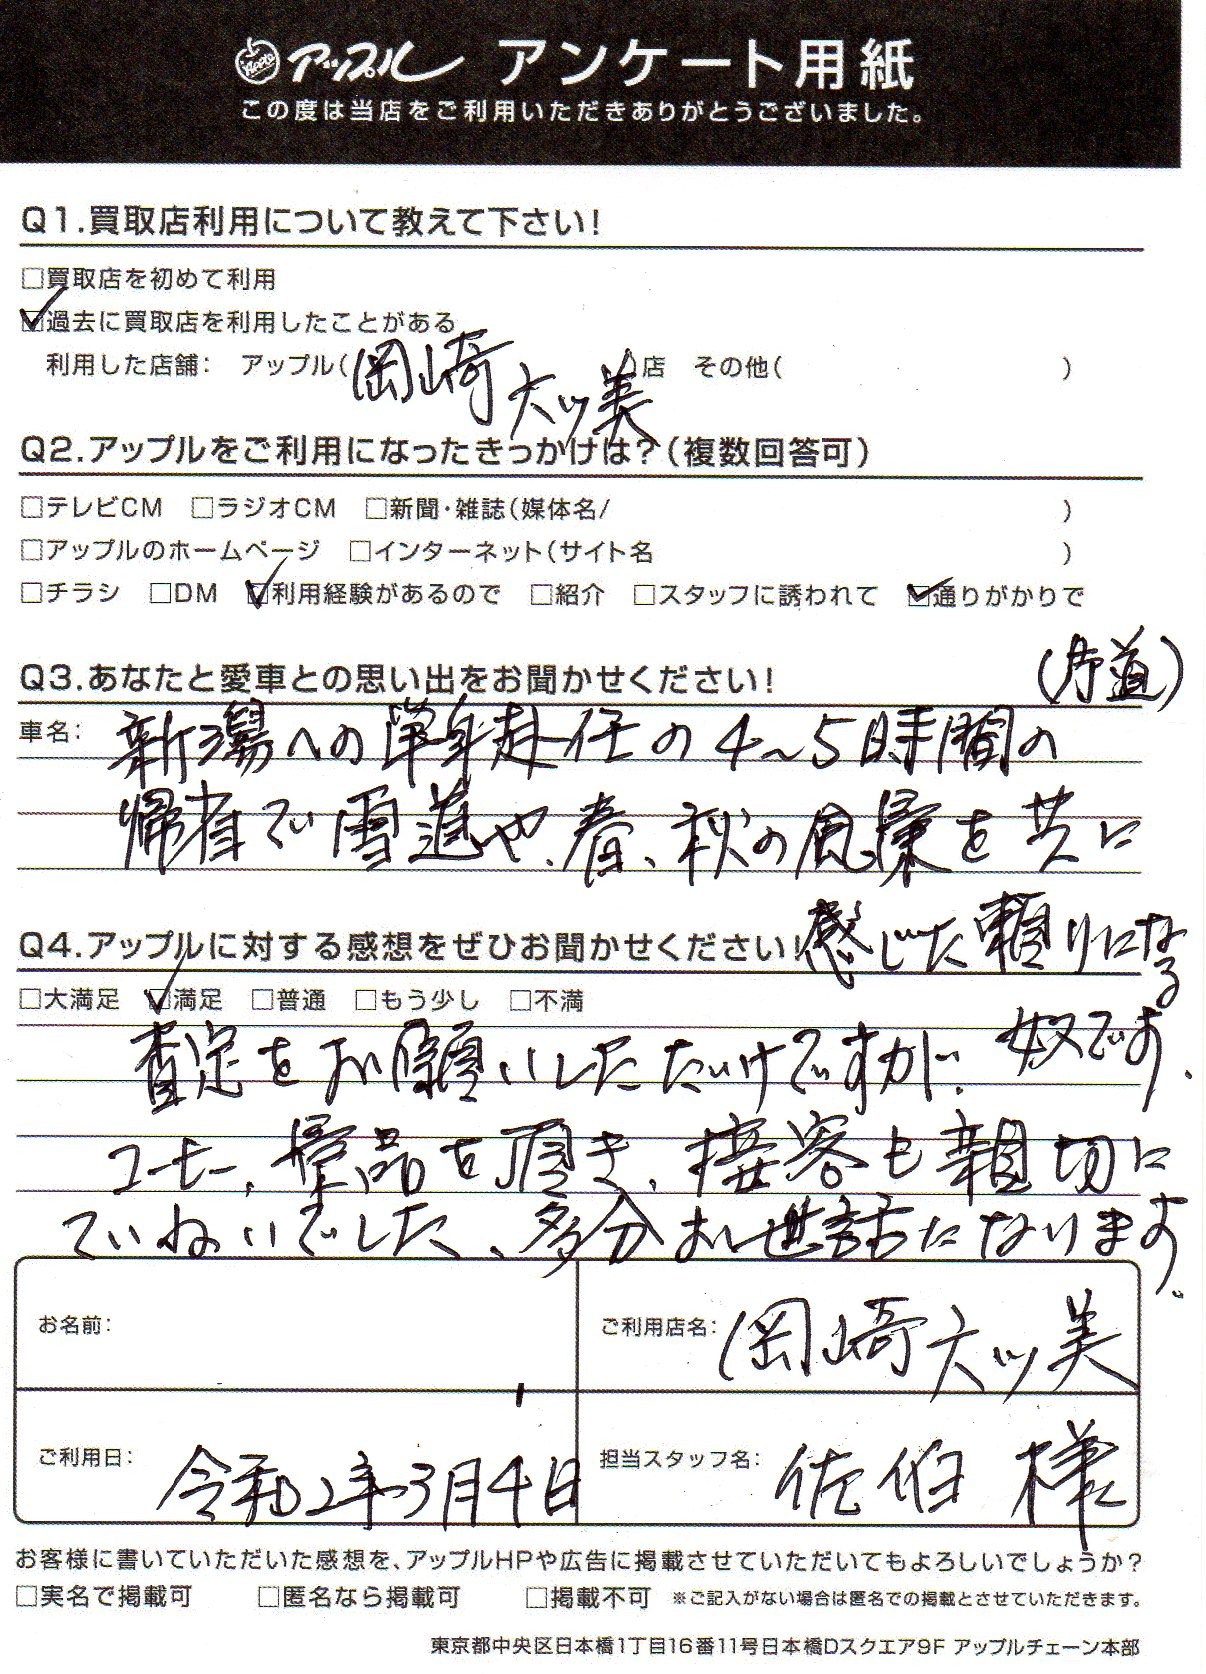 Apple アップル アンケート用紙
この度は当店をご利用いただきありがとうございました。
Q1.買取店利用について教えて下さい！
□買取店を初めて利用
☑過去に買取店を利用したことがある
利用した店舗： アップル（岡崎大ツ美）店 その他（ ）
Q2.アップルをご利用になったきっかけは？（複数回答可）
□テレビCM □ラジオCM □新聞・雑誌（媒体名/ ）
□アップルのホームページ □インターネット（サイト名 ）
□チラシ □DM ☑利用経験があるので □紹介 □スタッフに誘われて ☑通りがかりで
Q3.あなたと愛車との思い出をお聞かせください！
車名： 新潟への単身赴任の4～5時間の
帰省で雪道や、春、秋の風景を共に
感じた頼りになる
奴です。
Q4.アップルに対する感想をぜひお聞かせください！
□大満足 ☑満足 □普通 □もう少し □不満
査定をお願いしただけですが、
コーヒー、景品を頂き、接客も親切に
ていねいでした、多分お世話になります。
お名前：
ご利用店名： 岡崎大ツ美
ご利用日： 令和2年3月4日
担当スタッフ名： 佐伯 様
お客様に書いていただいた感想を、アップルHPや広告に掲載させていただいてもよろしいでしょうか？
□実名で掲載可 □匿名なら掲載可 □掲載不可 ※ご記入がない場合は匿名での掲載とさせていただきます。
東京都中央区日本橋1丁目16番11号日本橋Dスクエア9F アップルチェーン本部